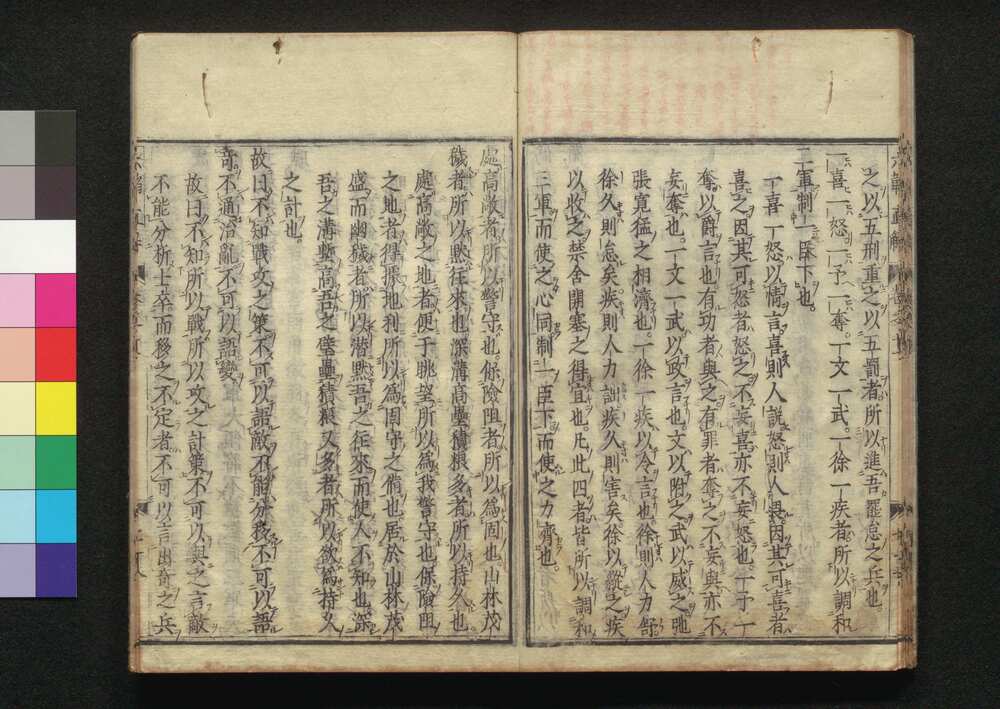 之以五刑重之以五罰者所以進吾罷怠之兵也
一喜一怒一予一奪一文一武一徐一疾者所以調和
三軍制一臣下也
一喜一怒以情言喜則人說怒則人畏因其可喜者
喜之因其可怒者怒之不妄喜亦不妄怒也一予一
奪以爵言也有功者與之有罪者奪之不妄與亦不
妄奪也一文一武以政言也文以附之武以威之弛
張寬猛之相濟也一徐一疾以令言也徐則人力舒
徐久則怠矣疾則人力詘疾久則害矣徐以縱之疾
以收之禁舍開塞之得宜也凡此四者皆所以調和
三軍而使之心同制一臣下而使之力齊也
處高敞者所以警守也保險阻者所以爲固也山林茂
穢者所以默往來也深溝高壘積糧多者所以持久也
處高敞之地者便于眺望所以爲我警守也保險阻
之地者得據地利所以爲固守之備也居於山林茂
盛而幽穢者所以潜默吾之往來而使人不知也深
吾之溝塹高吾之壁壘積糧又多者所以欲爲持久
之計也
故曰不知戰攻之策不可以語敵不能分移不可以語
奇不通治亂不可以語變
故曰不知所以戰所以攻之計策不可以與之言敵
不能分析士卒而移之不定者不可以言出奇之兵